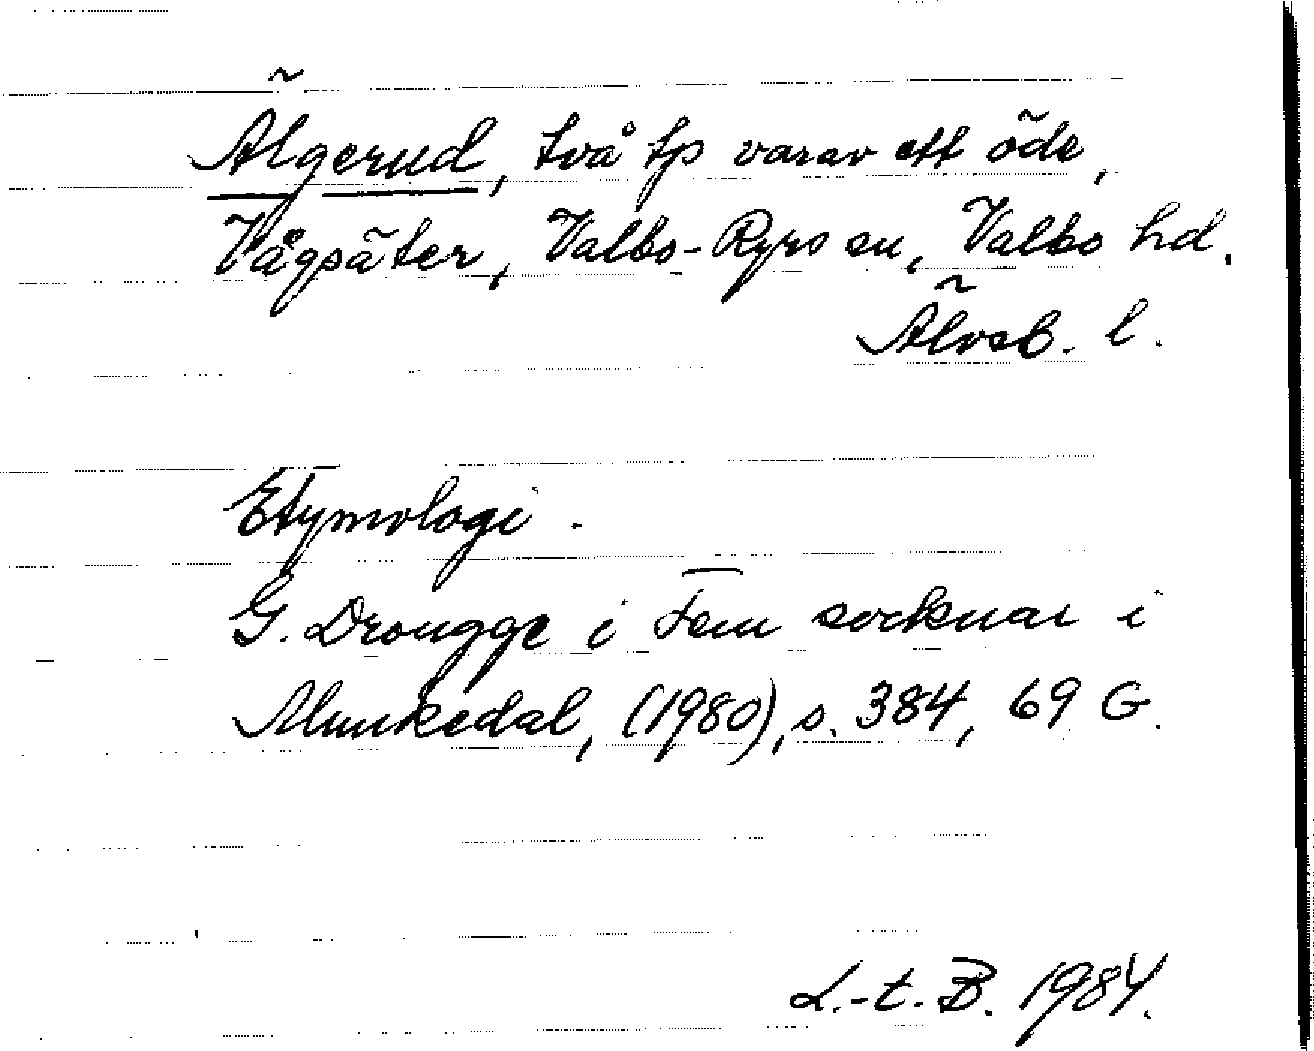 Älgerud, två tp varav ett öde,
Vågsäter, Valbo-Ryrs sn, Valbo hd.
Älvsb. l.
Etymologi.
G. Drougge i Fem socknar i
Munkedal, (1980), s. 384, 69 G.
L.-t. B. 1984.